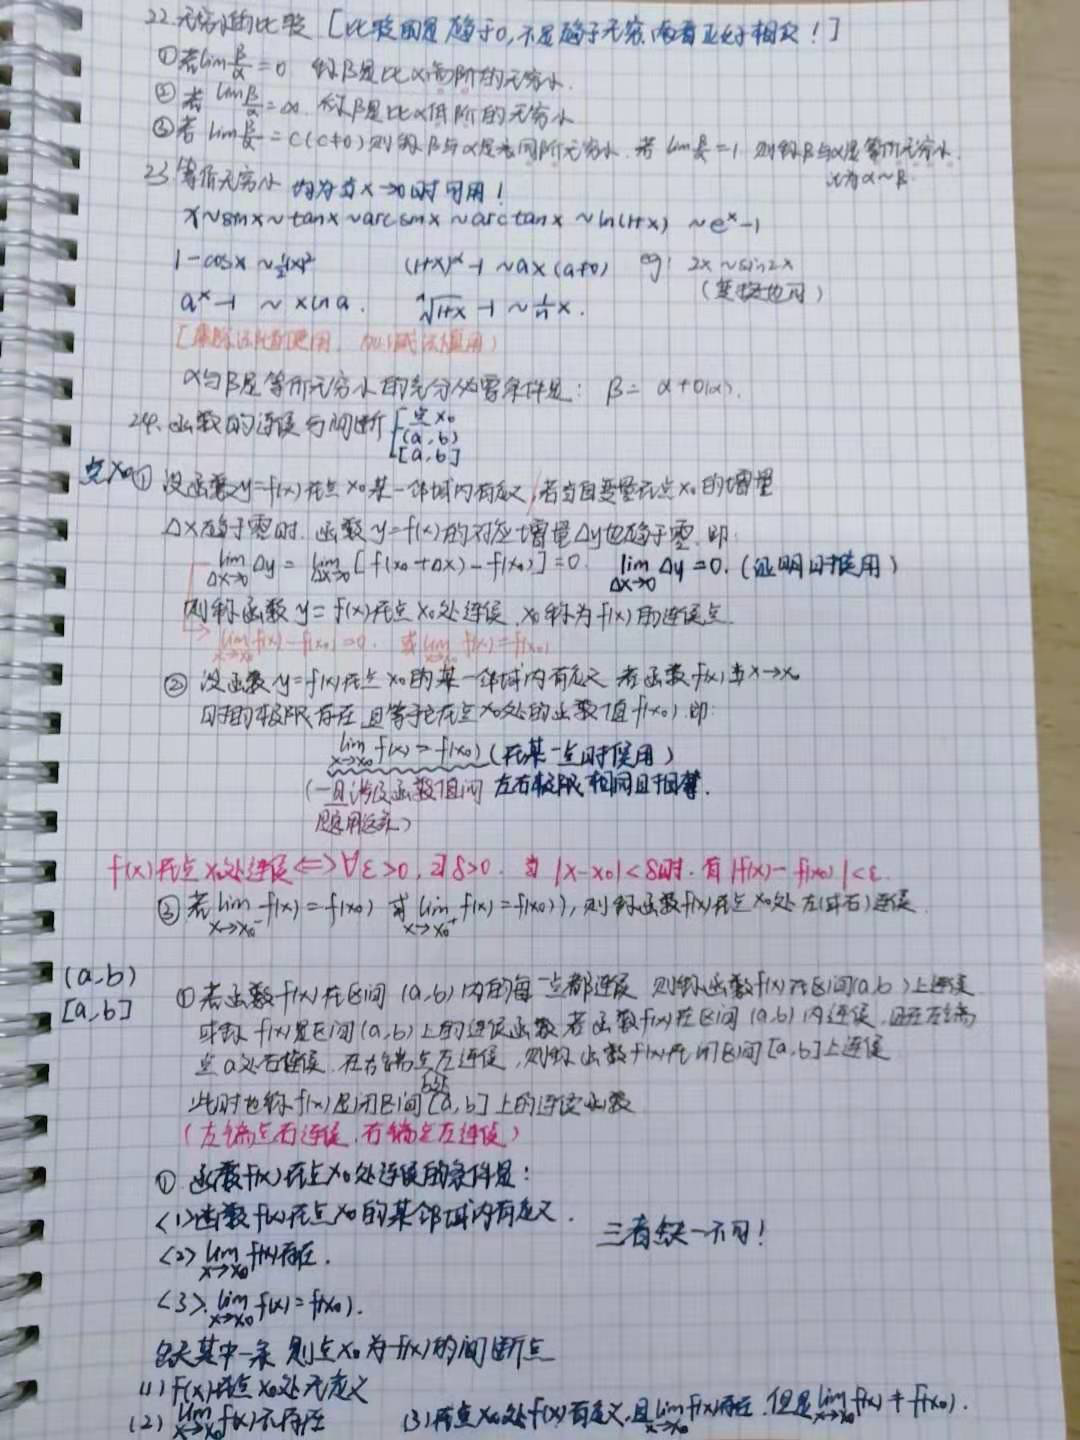 22.无穷小的比较 [比较的是趋于0,不是趋于无穷,两者正好相反!]
①若lim β/α=0 称β是比α高阶的无穷小.
②若 lim β/α=∞. 称β是比α低阶的无穷小
③若 lim β/α=C(C≠0)则称β与α是同阶无穷小. 若 lim β/α=1 则称β与α是等价无穷小.
记为α~β.
23 等价无穷小 均为当x→0时可用!
x~sinx~tanx~arcsinx~arctanx~ln(1+x) ~e^x-1
1-cosx~½(x)² (1+x)^α-1 ~αx(α≠0) eg: 2x~sin2x
(变换也可)
a^x-1 ~ xlna. ⁿ√1+x-1~1/n x.
[乘除法时使用. 加减法慎用)
α与β是等价无穷小的充分必要条件是: β= α+o(α).
24. 函数的连续与间断 点x₀
(a,b)
[a,b]
点x₀① 设函数y=f(x)在点x₀某一邻域内有定义,若当自变量在点x₀的增量
Δx趋于零时.函数y=f(x)的对应增量Δy也趋于零.即:
lim Δx→0 Δy= lim Δx→0 [f(x₀+Δx)-f(x₀)]=0. lim Δx→0 Δy=0.(证明时使用)
则称函数y=f(x)在点x₀处连续.x₀称为f(x)的连续点.
lim x→x₀ f(x)-f(x₀)=0. 或 lim x→x₀ f(x)=f(x₀)
② 设函数y=f(x)在点x₀的某一邻域内有定义 若函数f(x)当x→x₀
时的极限存在 且等于它在点x₀处的函数值f(x₀).即:
lim x→x₀ f(x)=f(x₀)(在某一点时使用)
(一旦涉及函数值问 左右极限相同且相等.
题用这条)
f(x)在点x₀处连续⟺∀ε>0,∃δ>0. 当|x-x₀|<δ时.有|f(x)-f(x₀)|<ε.
③若lim x→x₀⁻ f(x)=f(x₀) 或lim x→x₀⁺ f(x)=f(x₀)),则称函数f(x)在点x₀处左(或右)连续.
(a,b)
[a,b]
①若函数f(x)在区间(a,b)内的每一点都连续 则称函数f(x)在区间(a,b)上连续
或称f(x)是区间(a,b)上的连续函数 若函数f(x)在区间(a,b)内连续.且在左端
点a处右连续.在右端点左连续,则称函数f(x)在闭区间[a,b]上连续
此时也称f(x)是闭区间[a,b]上的连续函数
(左端点右连续.右端点左连续)
① 函数f(x)在点x₀处连续的条件是:
<1>函数f(x)在点x₀的某邻域内有定义. 三者缺一不可!
<2>lim x→x₀ f(x)存在.
<3>.lim x→x₀ f(x)=f(x₀).
其中一条 则点x₀为f(x)的间断点
(1)f(x)在点x₀处无定义
(2)lim x→x₀ f(x)不存在 (3)在点x₀处f(x)有定义,且lim x→x₀ f(x)存在.但是lim x→x₀ f(x)≠f(x₀).